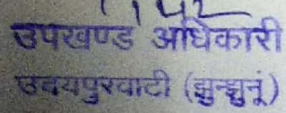 उपखण्ड अधिकारी
उदयपुरवाटी (झुन्झुनूं)